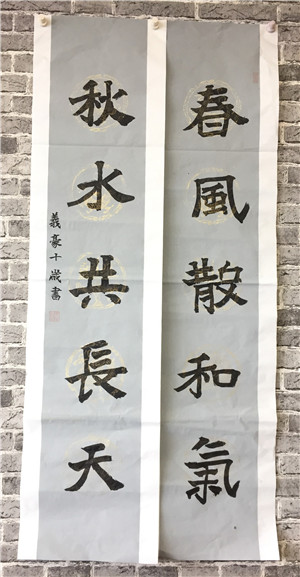 春風散和氣
秋水共長天
義豪十歲書